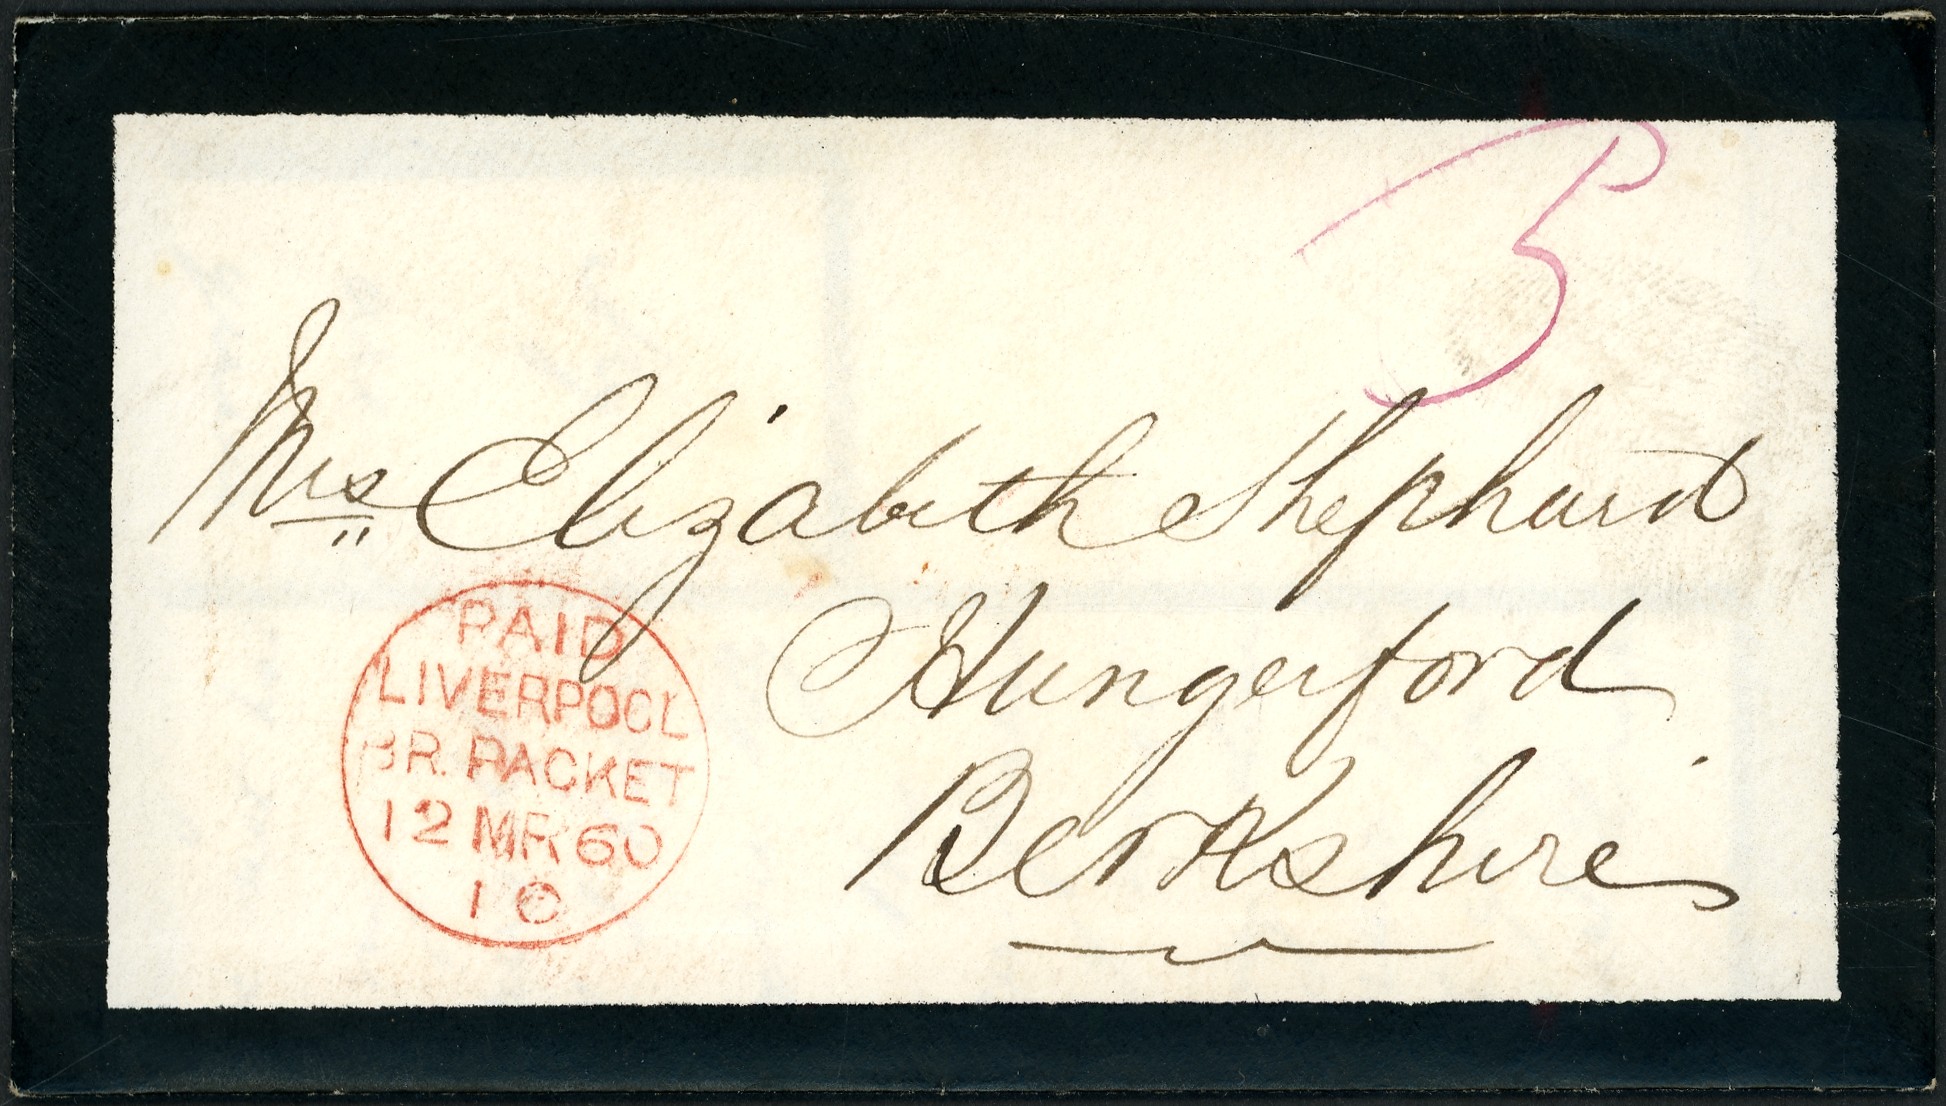 3
Mrs Elizabeth Shephard
Hungerford
Berkshire
PAID
LIVERPOOL
BR. PACKET
12 MR 60
10